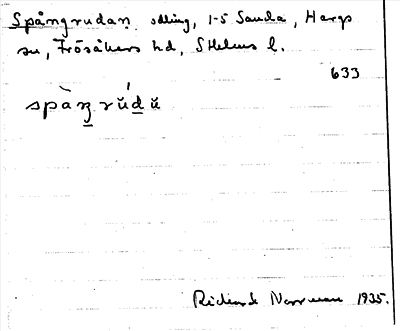 Spångrudan, odling, 1-5 Sanda, Hargs
sn, Frösåkers hd, Sthlms l.
633
spàŋrŭ́dŭ
Richard Norrman 1935.